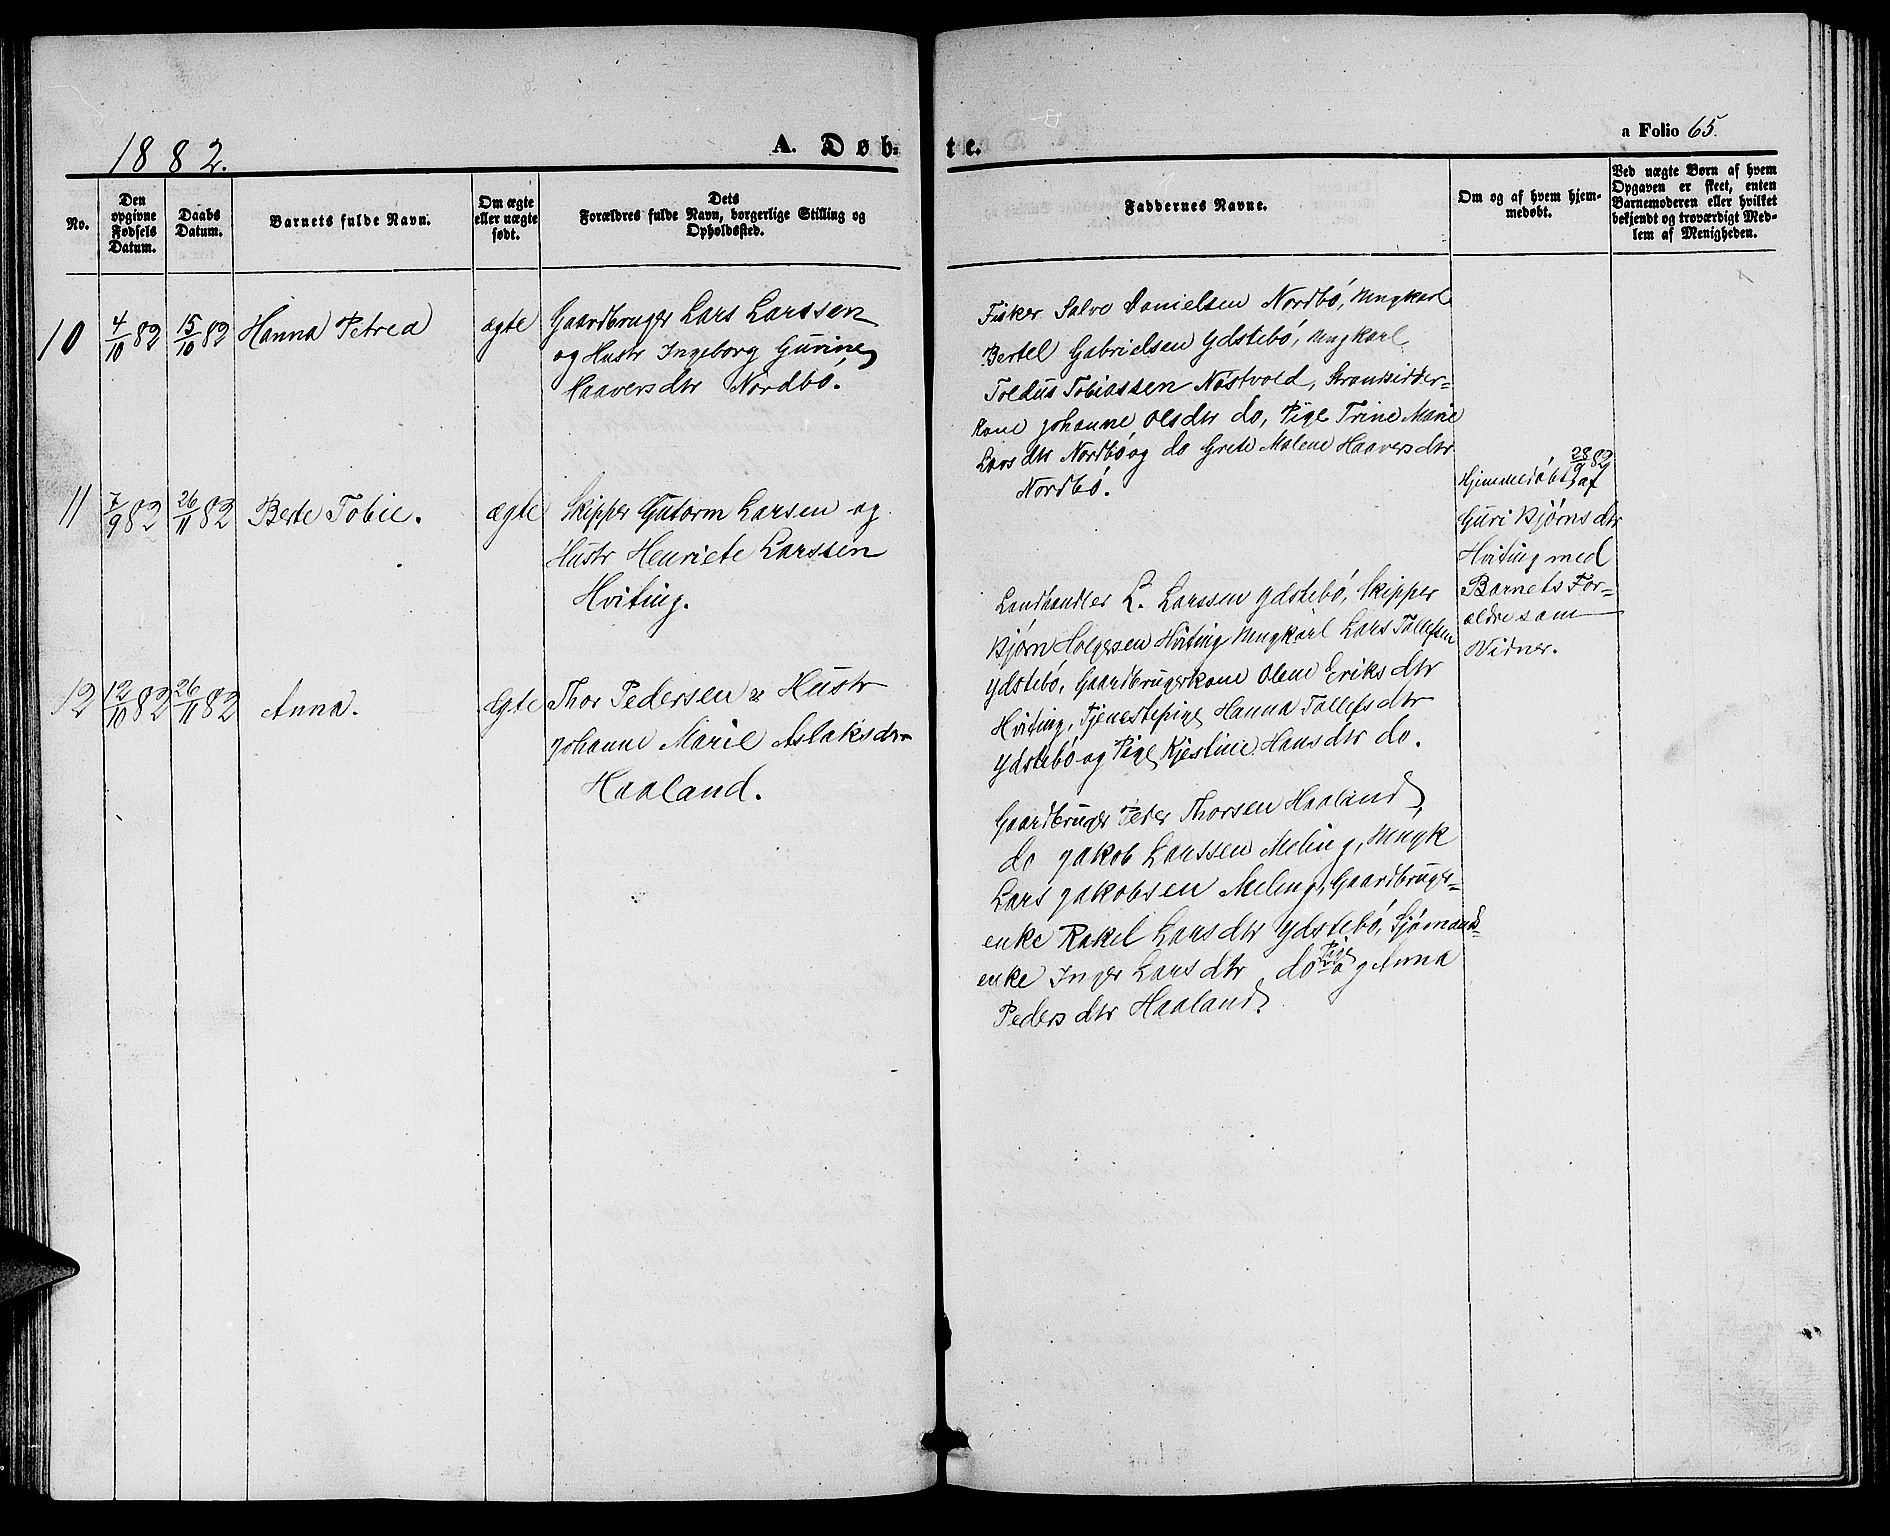 1882.
A. Døb-
te.
a Folio 65.
No.
Den
opgivne
Fødsels
Datum.
Daabs
Datum.
Barnets fulde Navn.
Om ægte
eller uægte
født.
Dets
Forældres fulde Navn, borgerlige Stilling og
Opholdssted.
Faddernes Navne.
Om og af hvem hjem-
medøbt.
Ved uægte Børn af hvem
Opgaven er skeet, enten
Barnemoderen eller hvilket
bekjendt og troværdigt Med-
lem af Menigheden.
10 4/10 82 15/10 82 Hanna Petrea ægte Gaardbruger Lars Larssen
og Hustr Ingeborg Gurine
Haaversdtr Nordbø.
Fisker Salve Danielsen Nordbø, Ungkarl
Bertel Gabrielsen Ydstebø, Ungkarl
Toldus Tobiassen Nøstvold, Strandsidder-
kone Johanne Olsdtr do, Pige Trine Marie
Larsdtr Nordbø og do Grete Malene Haaversdtr
Nordbø.
11 7/9 82 26/11 82 Berte Tobie. ægte Skipper Gutorm Larsen og
Hustr Henriete Larssen
Hviting.
Landhandler L. Larssen Ydstebø, Skipper
Bjørn Holgersen Hviting Ungkarl Lars Tollefsen
Ydstebø, Gaardbrugerkone Olene Eriksdtr
Hviting, Tjenestepige Hanna Tollefsdtr
Ydstebø og Pige Kjestine Hansdtr do.
28/9 82
Hjemmedøbt af
Guri Bjørnsdtr
Hviting med
Barnets For-
ældre som
Vidner.
12 12/10 82 26/11 82 Anna. ægte Thor Pedersen & Hustr
Johanne Marie Aslaksdtr
Haaland.
Gaardbruger Peder Thorsen Haaland,
do Jakob Larssen Meling, Ungk
Lars Jakobsen Meling, Gaardbruger-
enke Rakel Larsdtr Ydstebø, Sjømands-
enke Inger Larsdtr do og Pige Anna
Pedersdtr Haaland.